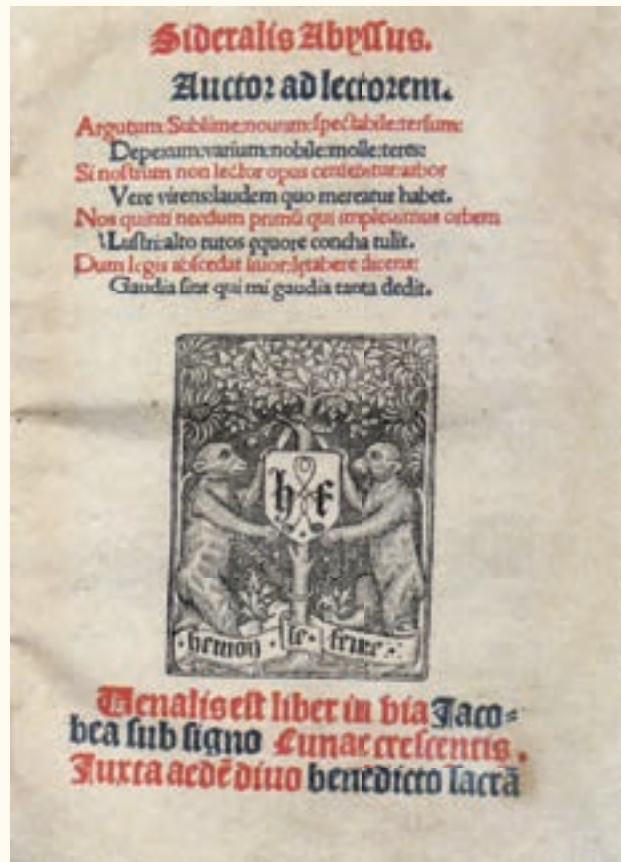 Sideralis Abyssus.
Auctor ad lectorem.
Argutum: Sublime: nouum: spectabile: tersum:
Depexum: varium: nobile: molle: teres:
Si nostrum non lector opus censeatur: arbor
Vere virens: laudem quo mereatur habet.
Nos quinti necdum primū qui impleuimus orbem
Lustri: alto tutos ęquore concha tulit.
Dum legis abscedat liuor: lętabere diceris:
Gaudia sint qui mi gaudia tanta dedit.
h f
hemon le feure
Uenalis est liber in via Jaco=
bea sub signo Lunae crescentis.
Juxta aedē diuo benedicto sacrā